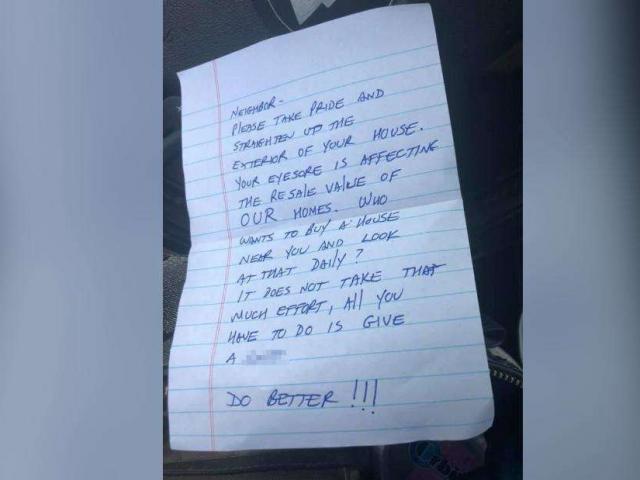 NEIGHBOR-
PLEASE TAKE PRIDE AND
STRAIGHTEN UP THE
EXTERIOR OF YOUR HOUSE.
YOUR EYESORE IS AFFECTING
THE RESALE VALUE OF
OUR HOMES. WHO
WANTS TO BUY A HOUSE
NEAR YOU AND LOOK
AT THAT DAILY?
IT DOES NOT TAKE THAT
MUCH EFFORT, All YOU
HAVE TO DO IS GIVE
A
DO BETTER!!!